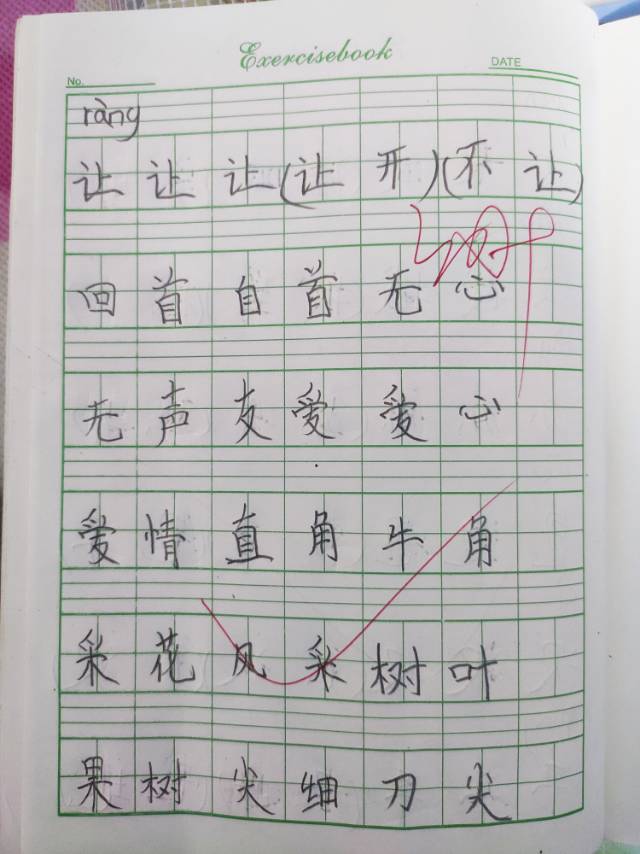 Exercisebook
No. DATE
ràng
让 让 让 (让 开) (不 让)
回 首 自 首 无 心
无 声 友 爱 爱 心
爱 情 直 角 牛 角
采 花 风 采 树 叶
果 树 尖 细 刀 尖